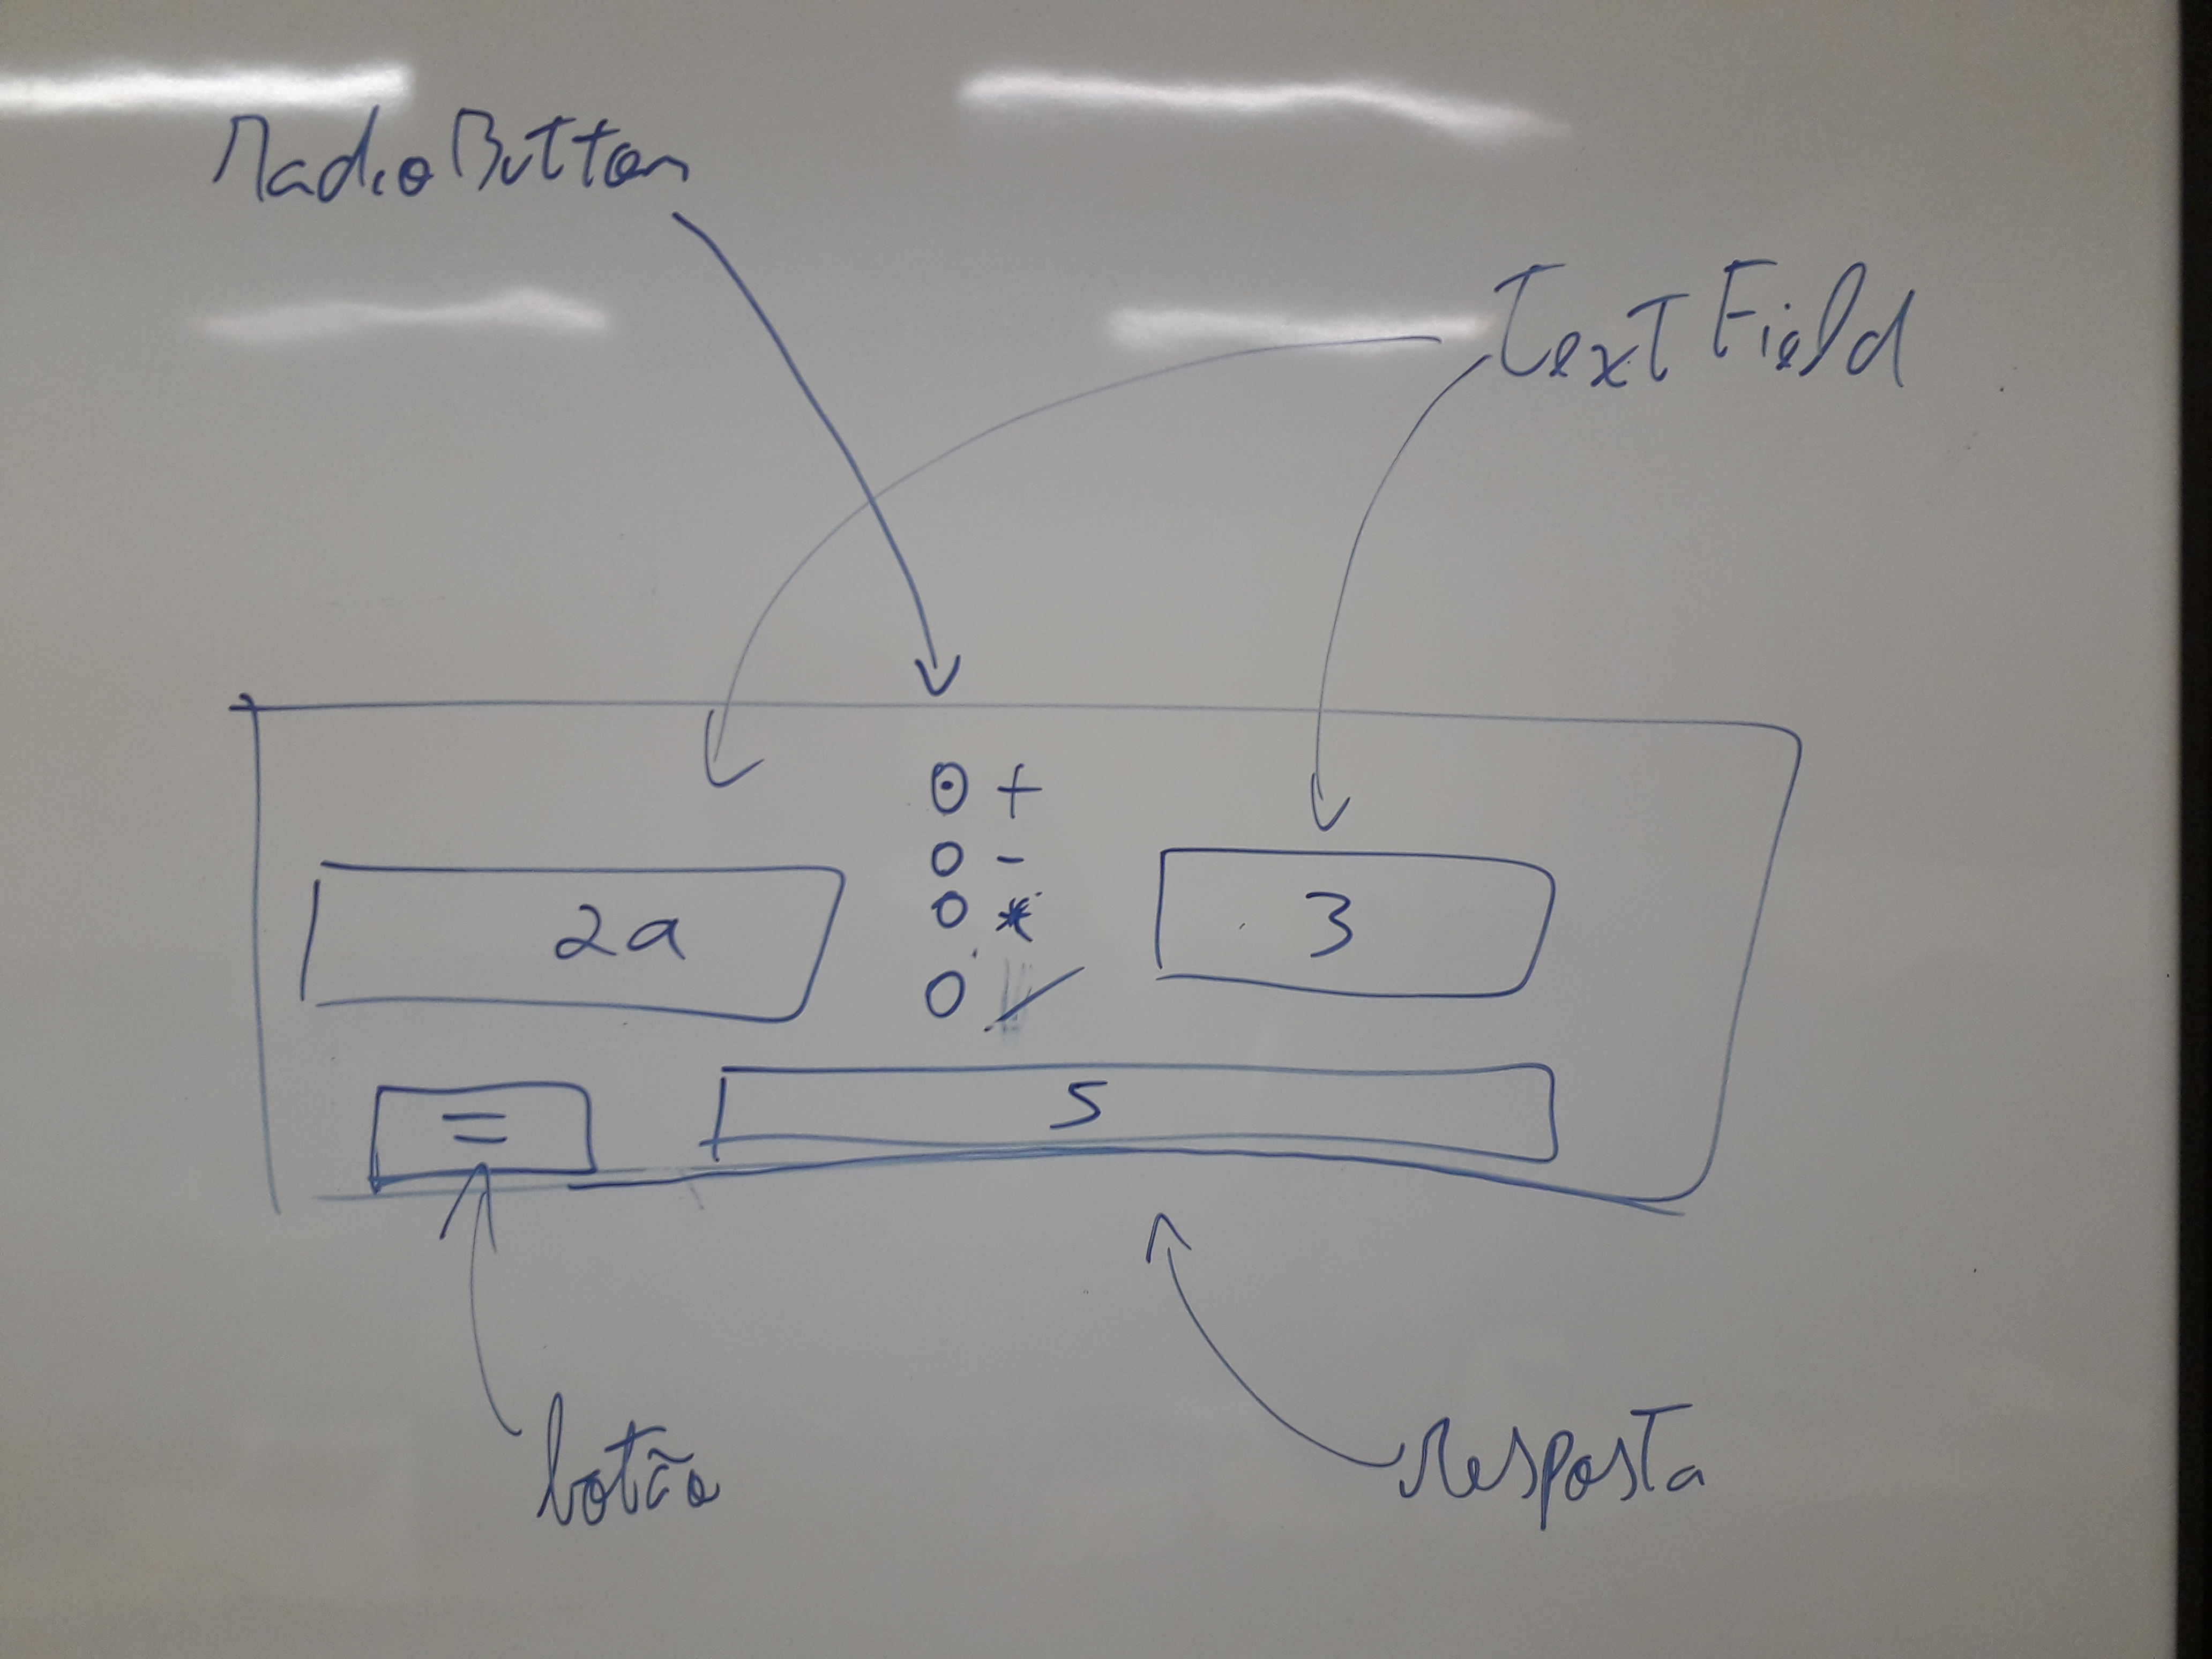 RadioButton
TextField
+
-
2a * 3
/
= 5
botão
Resposta